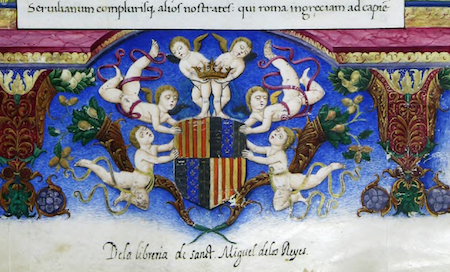 Seruilianum compluresq; alios nostrates: qui roma in greciam ad capiē
De la libreria de sanct Miguel de los Reyes.